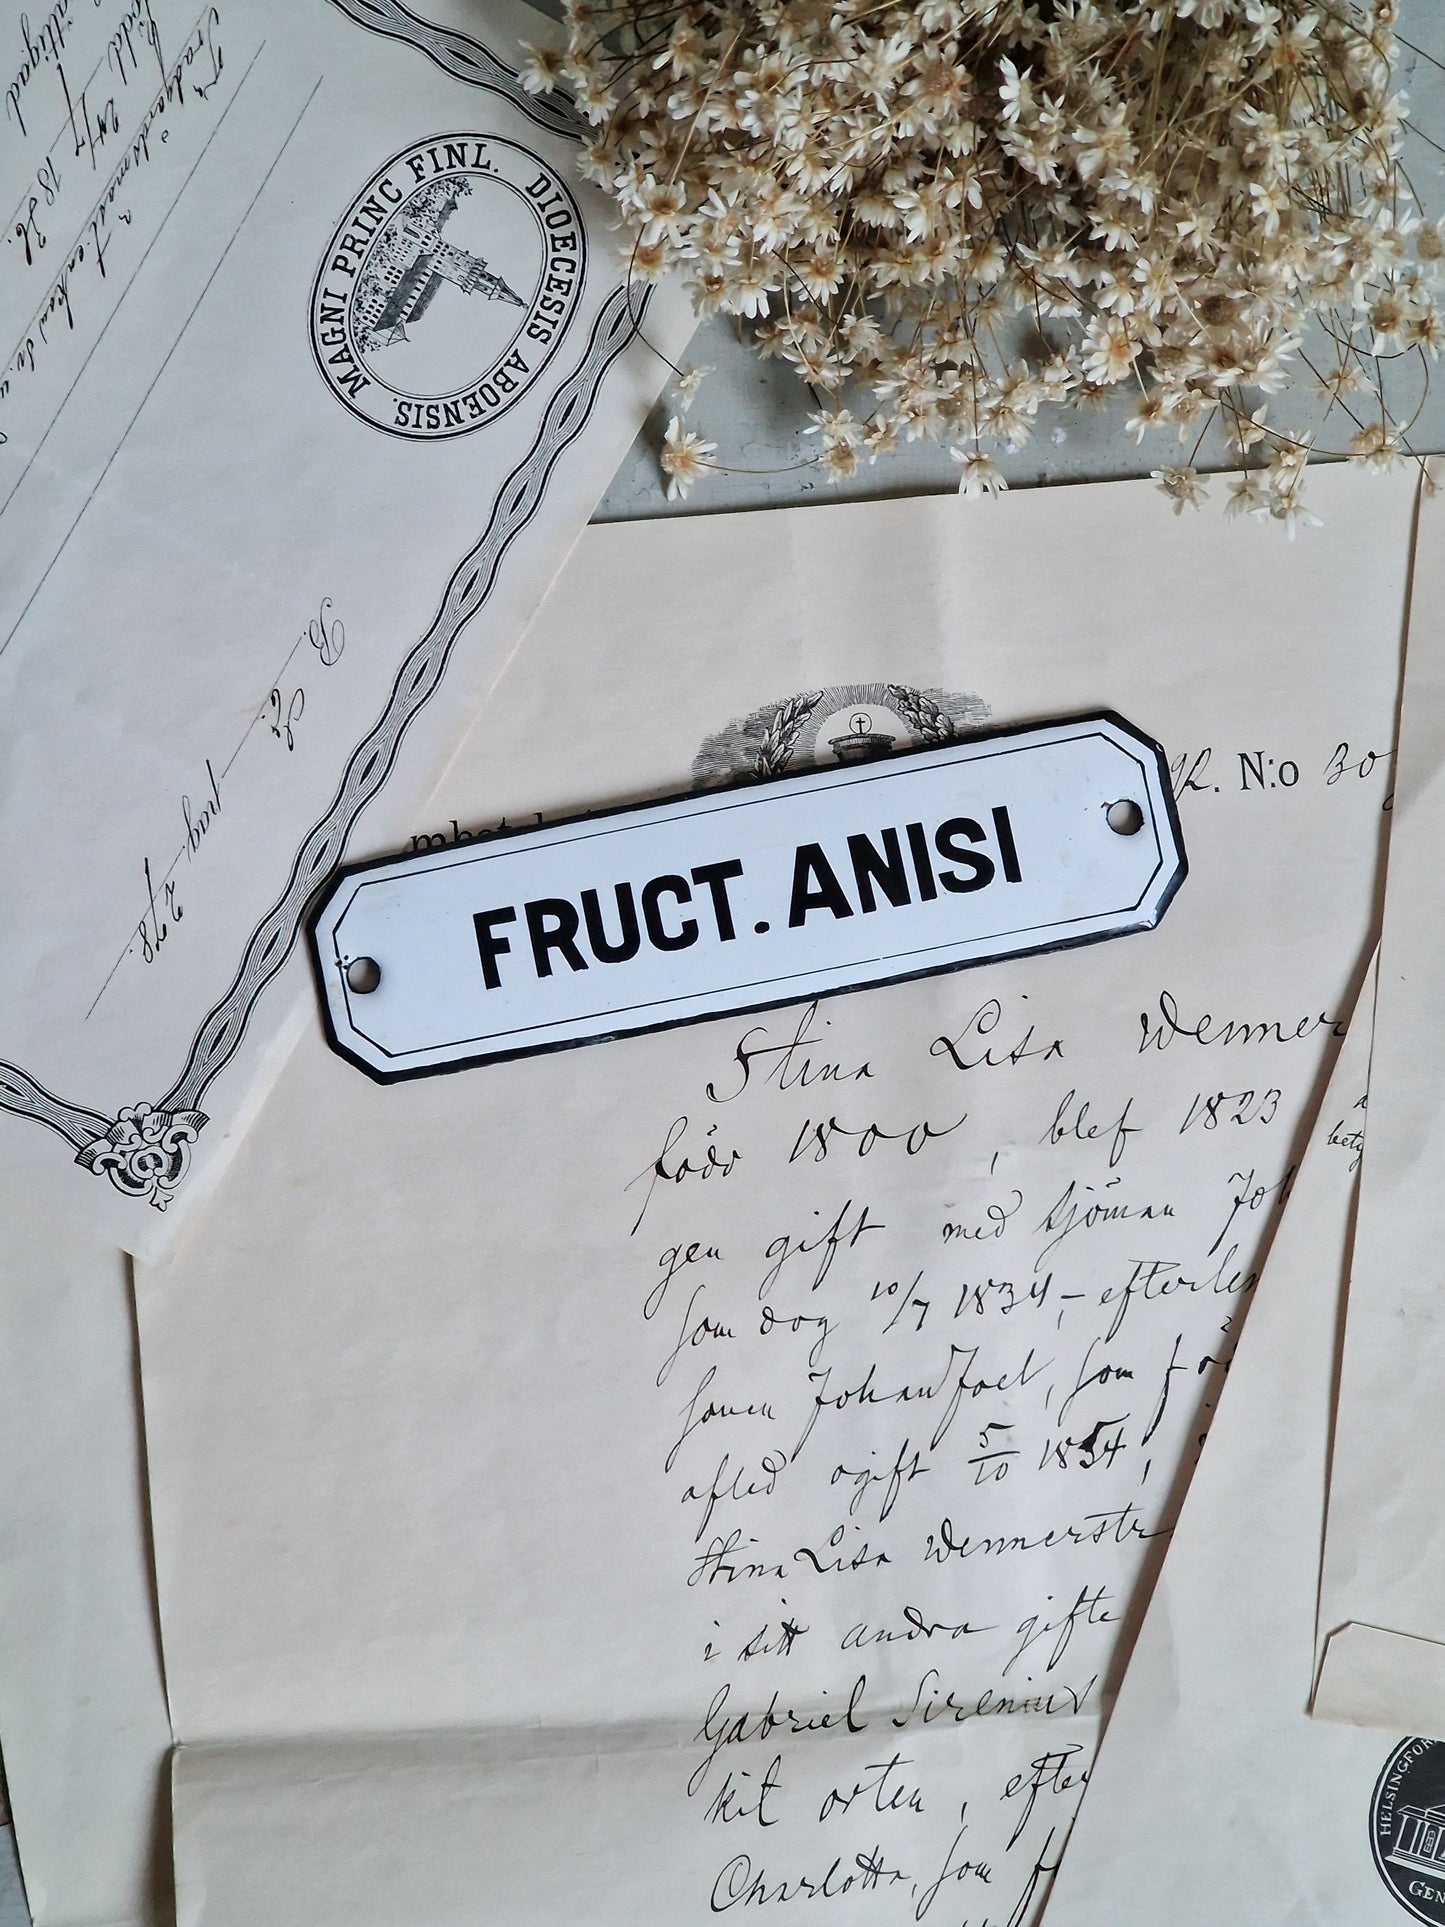 MAGNI PRINC FINL. DIOECESIS ABOENSIS.
B. L. 6.
pag. 278.
92. N:o 30
FRUCT. ANISI
Stina Lisa Wenner
född 1800, blef 1823
gen gift med sjöman Joh
som dog 10/7 1834, – efterlem
sonen Johan Joel, som fö
afled ogift 5/10 1854,
Stina Lisa Wennerstr
i sitt andra gifte
Gabriel Sirenius
kit orten, efter
Charlotta, som f
bety
HELSINGFOR
GEN